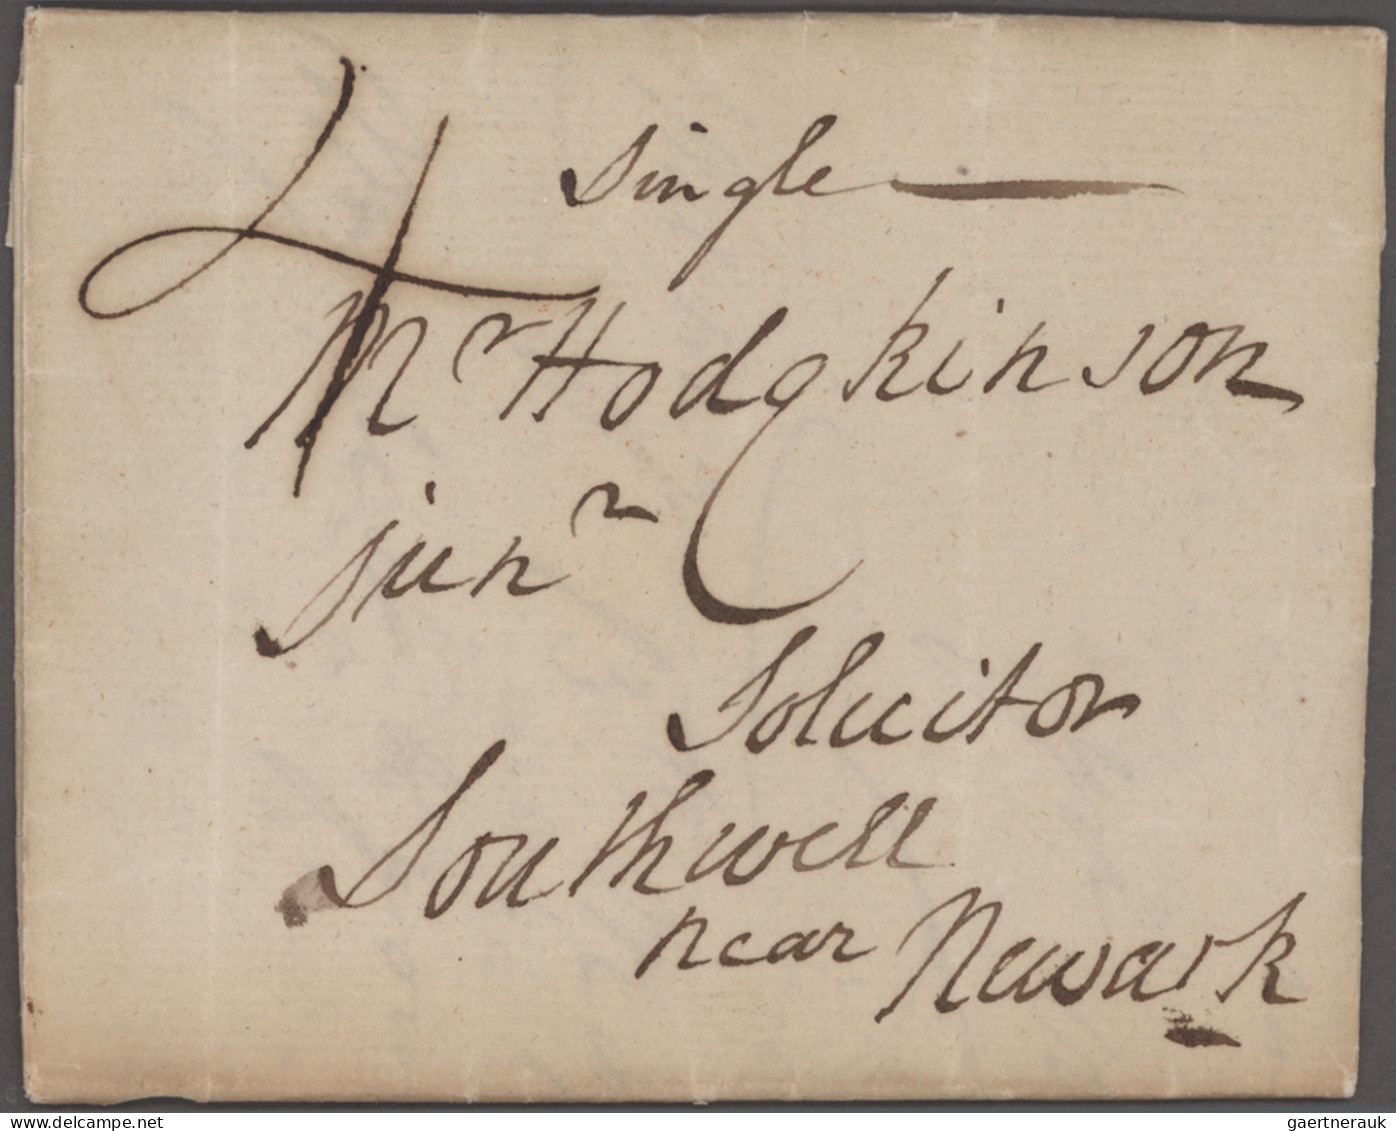 single
4
Mr Hodgkinson
junr
Solicitor
Southwell
near Newark
delcampe.net
gaertnerauk